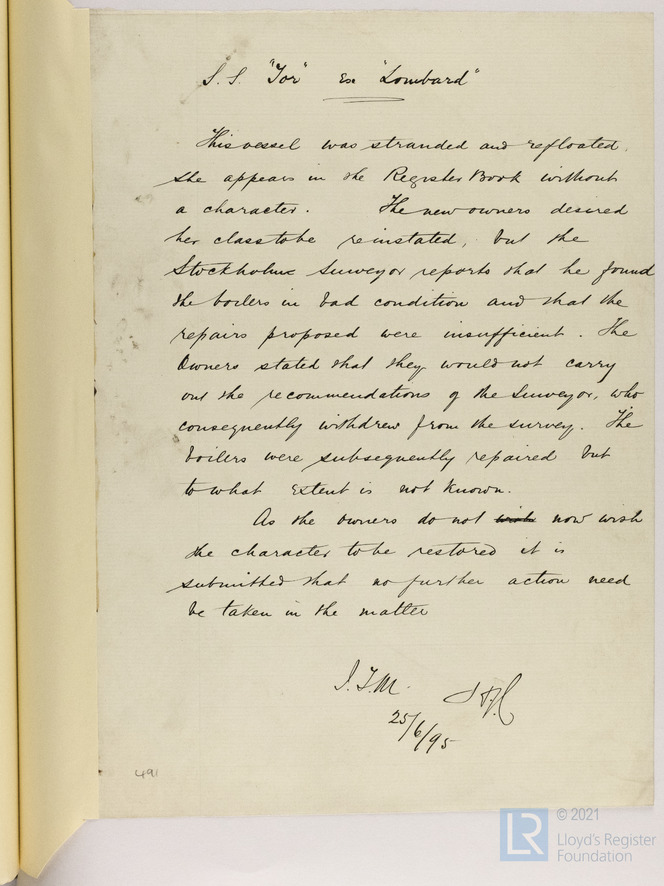 S.S. "Tor" Ex "Lombard"
This vessel was stranded and refloated,
she appears in the Register Book without
a character. The new owners desired
her class to be reinstated, but the
Stockholm Surveyor reports that he found
the boilers in bad condition and that the
repairs proposed were insufficient. The
Owners stated that they would not carry
out the recommendations of the Surveyor, who
consequently withdrew from the survey. The
boilers were subsequently repaired but
to what extent is not known.
As the owners do not wish now wish
the character to be restored it is
submitted that no further action need
be taken in the matter
J.T.M.
25/6/95
491
LR
© 2021
Lloyd's Register
Foundation